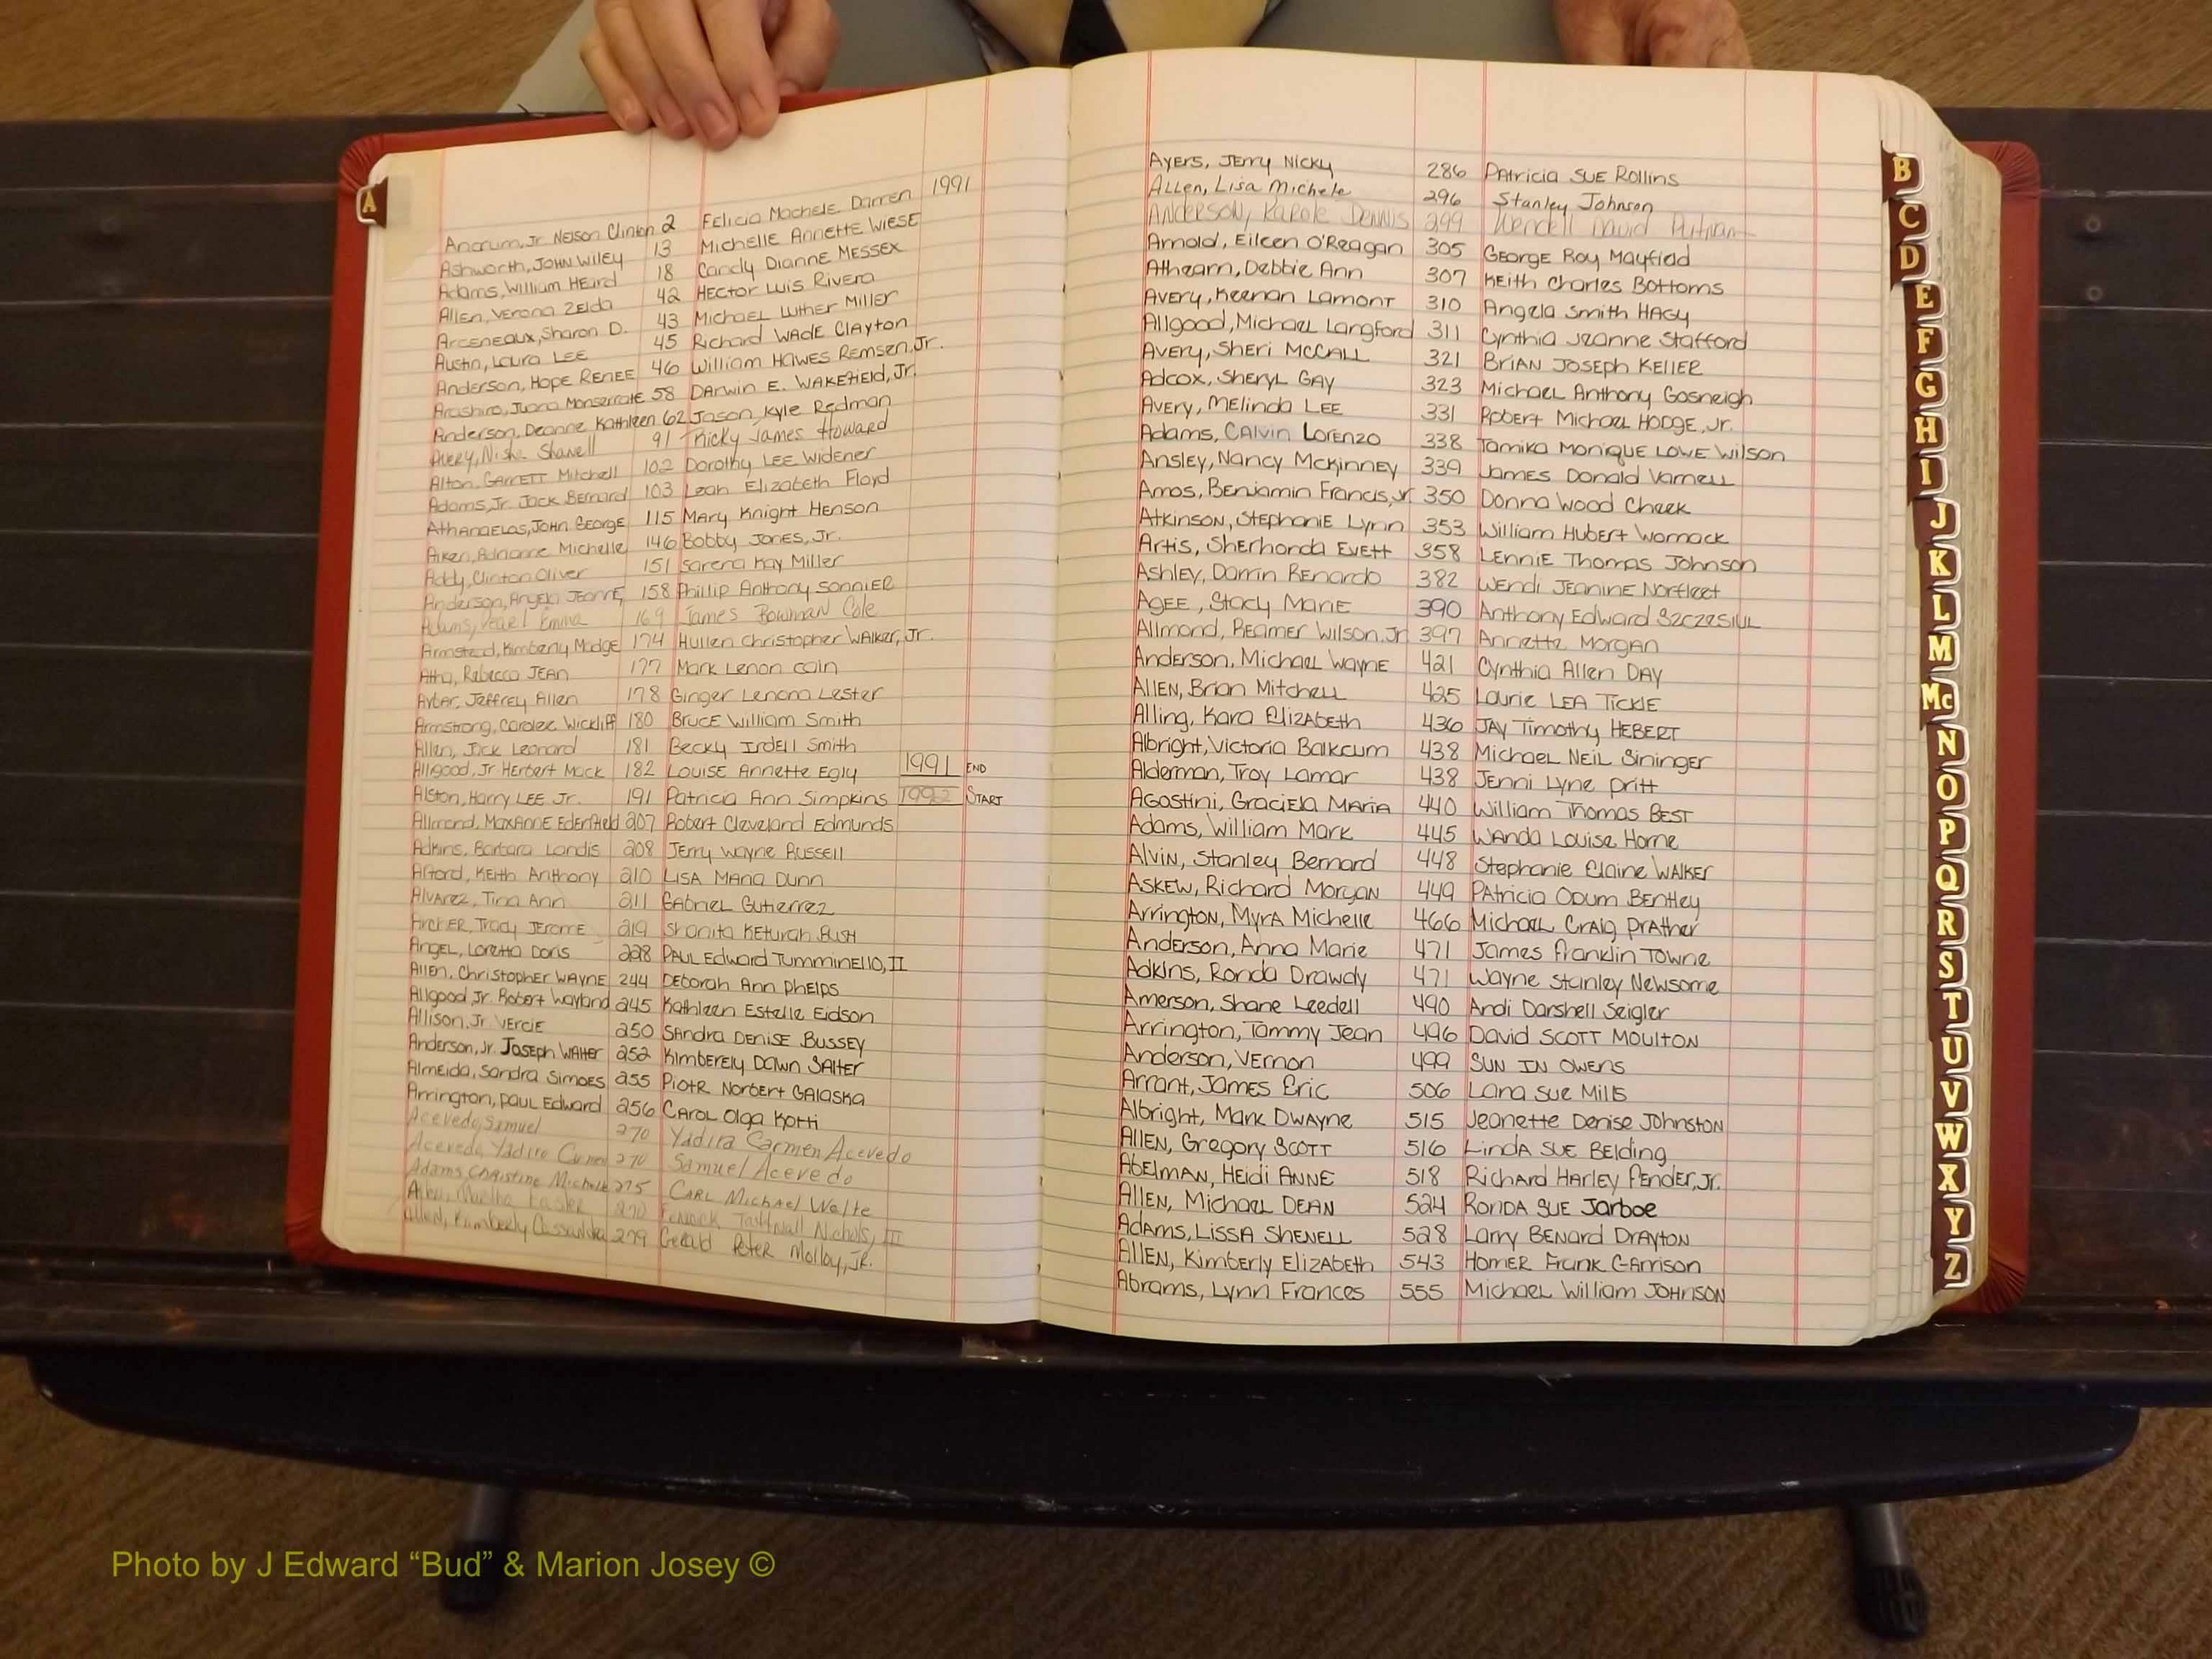 A
Ancrum, Jr Nelson Clinton 2 Felicia Machele Darren 1991
Ashworth, John Wiley 13 Michelle Annette Wiese
Adams, William Heard 18 Candy Dianne Messex
Allen, Verona Zelda 42 Hector Luis Rivera
Arceneaux, Sharon D. 43 Michael Luther Miller
Austin, Laura Lee 45 Richard Wade Clayton
Anderson, Hope Renee 46 William Hawes Remsen, Jr.
Arashiro, Juana Monserrate 58 Darwin E. Wakefield, Jr.
Anderson, Deanne Kathleen 62 Jason Kyle Redman
Avery, Nisha Shawell 91 Ricky James Howard
Alton, Garrett Mitchell 102 Dorothy Lee Widener
Adams, Jr. Jack Bernard 103 Leah Elizabeth Floyd
Athanaelos, John George 115 Mary Knight Henson
Aiken, Adrianne Michelle 146 Bobby Jones, Jr.
Addy, Clinton Oliver 151 Sarena Kay Miller
Anderson, Angela Jeanne 158 Phillip Anthony Sonnier
Adams, Pearl Emma 169 James Bowman Cole
Armstead, Kimberly Madge 174 Hullen Christopher Walker, Jr.
Atha, Rebecca Jean 177 Mark Lenon Cain
Ayter, Jeffrey Allen 178 Ginger Lenora Lester
Armstrong, Carolee Wickliff 180 Bruce William Smith
Allen, Jack Leonard 181 Becky Irdell Smith
Allgood, Jr Herbert Mack 182 Louise Annette Egly 1991 END
Alston, Harry Lee Jr. 191 Patricia Ann Simpkins 1992 START
Allmond, Maxanne Edenfield 207 Robert Cleveland Edmunds
Adkins, Barbara Landis 208 Jerry Wayne Russell
Alford, Keith Anthony 210 Lisa Maria Dunn
Alvarez, Tina Ann 211 Gabriel Gutierrez
Archer, Tracy Jerome 219 Shanita Keturah Bush
Angel, Loretta Doris 228 Paul Edward Tumminello, II
Allen, Christopher Wayne 244 Deborah Ann Phelps
Allgood, Jr. Robert Wayland 245 Kathleen Estelle Eidson
Allison, Jr. Vercie 250 Sandra Denise Bussey
Anderson, Jr. Joseph Walter 252 Kimberely Dawn Salter
Almeida, Sandra Simoes 255 Piotr Norbert Galaska
Arrington, Paul Edward 256 Carol Olga Kotti
Acevedo, Samuel 270 Yadira Carmen Acevedo
Acevedo, Yadira Carmen 270 Samuel Acevedo
Adams, Christine Michele 275 Carl Michael Wolte
Martha 270 Tattnall Nichols, III
Allen, Kimberly Cassandra 279 Gerald Peter Molloy, Jr.
Ayers, Jerry Nicky 286 Patricia Sue Rollins
Allen, Lisa Michele 296 Stanley Johnson
Anderson, Karole Dennis 299 Wendell David Putnam
Arnold, Eileen O'Reagan 305 George Roy Mayfield
Athearn, Debbie Ann 307 Keith Charles Bottoms
Avery, Keenan Lamont 310 Angela Smith Hagy
Allgood, Michael Langford 311 Cynthia Jeanne Stafford
Avery, Sheri McCall 321 Brian Joseph Keller
Adcox, Sheryl Gay 323 Michael Anthony Gosneigh
Avery, Melinda Lee 331 Robert Michael Hodge, Jr.
Adams, Calvin Lorenzo 338 Tamika Monique Lowe Wilson
Ansley, Nancy McKinney 339 James Donald Varnell
Amos, Benjamin Francis, Jr. 350 Donna Wood Cheek
Atkinson, Stephanie Lynn 353 William Hubert Womack
Artis, Sherhonda Evett 358 Lennie Thomas Johnson
Ashley, Darrin Renardo 382 Wendi Jeanine Norfleet
Agee, Stacy Marie 390 Anthony Edward Szczesiul
Allmond, Reamer Wilson, Jr 397 Annette Morgan
Anderson, Michael Wayne 421 Cynthia Allen Day
Allen, Brian Mitchell 425 Laurie Lea Tickle
Alling, Kara Elizabeth 436 Jay Timothy Hebert
Albright, Victoria Balkcum 438 Michael Neil Sininger
Alderman, Troy Lamar 438 Jenni Lyne Pritt
Agostini, Graciela Maria 440 William Thomas Best
Adams, William Mark 445 Wanda Louise Horne
Alvin, Stanley Bernard 448 Stephanie Elaine Walker
Askew, Richard Morgan 449 Patricia Odum Bentley
Arrington, Myra Michelle 466 Michael Craig Prather
Anderson, Anna Marie 471 James Franklin Towne
Adkins, Ronda Drawdy 471 Wayne Stanley Newsome
Amerson, Shane Leedell 490 Andi Darshell Seigler
Arrington, Tammy Jean 496 David Scott Moulton
Anderson, Vernon 499 Sun In Owens
Arrant, James Eric 506 Lana Sue Mills
Albright, Mark Dwayne 515 Jeanette Denise Johnston
Allen, Gregory Scott 516 Linda Sue Belding
Abelman, Heidi Anne 518 Richard Harley Pender, Jr.
Allen, Michael Dean 524 Ronda Sue Jarboe
Adams, Lissa Shenell 528 Larry Benard Drayton
Allen, Kimberly Elizabeth 543 Homer Frank Garrison
Abrams, Lynn Frances 555 Michael William Johnson
B
C
D
E
F
G
H
I
J
K
L
M
Mc
N
O
P
Q
R
S
T
U
V
W
X
Y
Z
Photo by J Edward “Bud” & Marion Josey ©